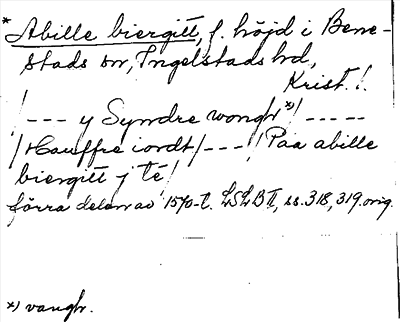 * Abille biergitt, f. höjd i Bene-
stads sn, Ingelstads hd,
Krist. l.
/--- y Syndre wongh*)/-----
/Hauffre iordt/---/Paa abille
biergitt j té/
förra delen av 1570-t. LSLB II, ss. 318, 319. orig.
*) vangh.